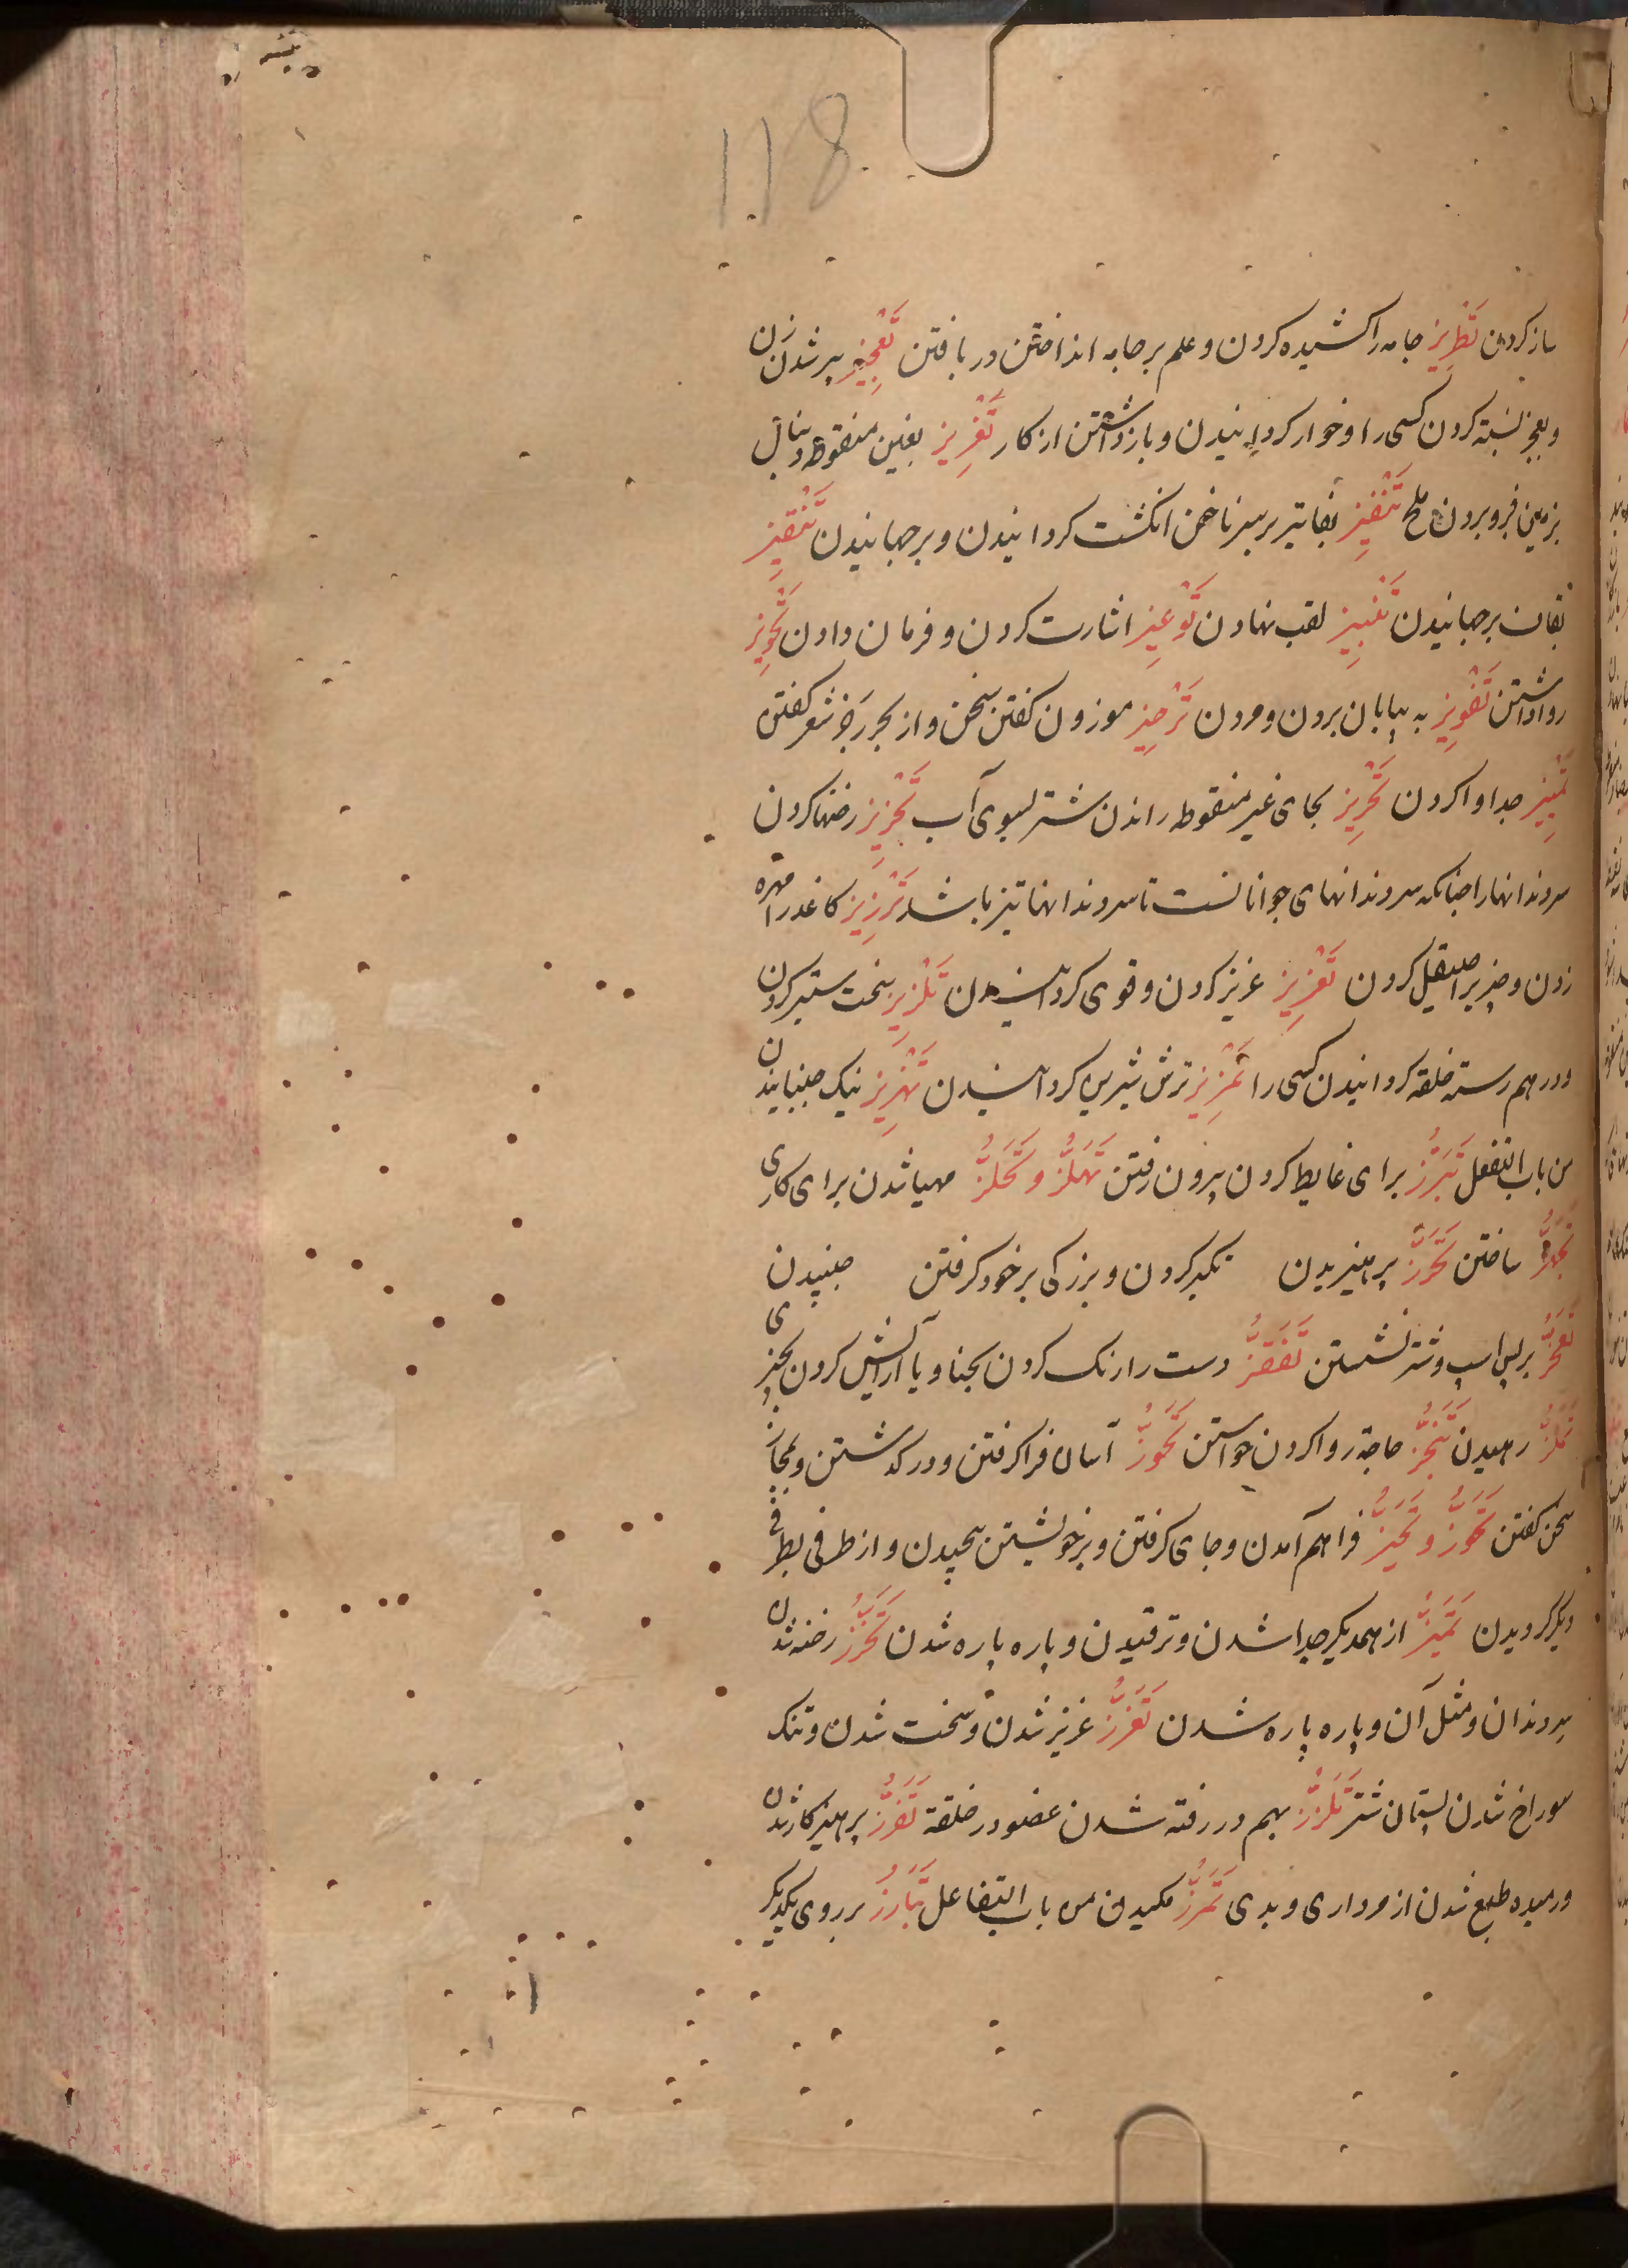 118
ساز کردن تَطْرِیز جامه را کشیده کردن و علم بر جامه انداختن در بافتن تَعْجِیز پیر شدن زن
و بعجز نسبته کردن کسی را و خوار کردانیدن و باز داشتن از کار تَغْرِیز بغین منقوطه دنبال
بزمین فرو بردن ملخ تَنْفِیز بفا تیر بر سر ناخن انکشت کردانیدن و برجهانیدن تَنْقِیز
بقاف برجهانیدن تَنْبِیز لقب نهادن تَوْعِیز اشارت کردن و فرمان دادن تَجْوِیز
روا داشتن تَفْوِیز به بیابان بردن و مردن تَرْجِیز موزون کفتن سخن و از بحر رجز شعر کفتن
تَمْیِیز جدا وا کردن تَحْرِیز بحای غیر منقوطه راندن شتر بسوی آب تَحْزِیز رخنها کردن
سر دندانها را چنانکه سر دندانهای جوانانست تا سر دندانها تیز باشد تَرْزِیز کاغذ را مهره
زدن و چیز را صیقل کردن تَعْزِیز عزیز کردن و قوی کردانیدن تَلْزِیز سخت ستبر کردن
و در هم رسته خلقه کردانیدن کسی را تَمْزِیز ترش شیرین کردانیدن تَهْزِیز نیک جنبانیدن
من باب التفعل تَبَرُّز برای غایط کردن بیرون رفتن تَهَلُّز و تَحَلُّز مهیا شدن برای کاری
ساختن تَحَرُّز پرهیزیدن تکبر کردن و بزرکی بر خود کرفتن جنبیدن
تَعَجُّز بر پس اسپ و شتر نشستن تَقَفُّز دست را رنک کردن بحنا و یا آرایش کردن بچیزی
تَمَلُّز رهیدن تَنَجُّز حاجة روا کردن خواستن تَجَوُّز آسان فرا کرفتن و در کذشتن و بمجاز
سخن کفتن تَحَوُّز و تَحَیُّز فراهم آمدن و جای کرفتن و بر خویشتن پیچیدن و از طرفی بطرفی
دیکر کردیدن تَمَیُّز از همدیکر جدا شدن و ترقیدن و پاره پاره شدن تَحَزُّز رخنه شدن
سر دندان و مثل آن و پاره پاره شدن تَعَزُّز عزیز شدن و سخت شدن و تنک
سوراخ شدن پستان شتر تَلَزُّز بهم در رفته شدن عضو در خلقة تَقَزُّز پرهیزکار شدن
و رمیده طبع شدن از مرداری و بدی تَمَزُّز مکیدن من باب التفاعل تَبَارُز بر روی یکدیکر